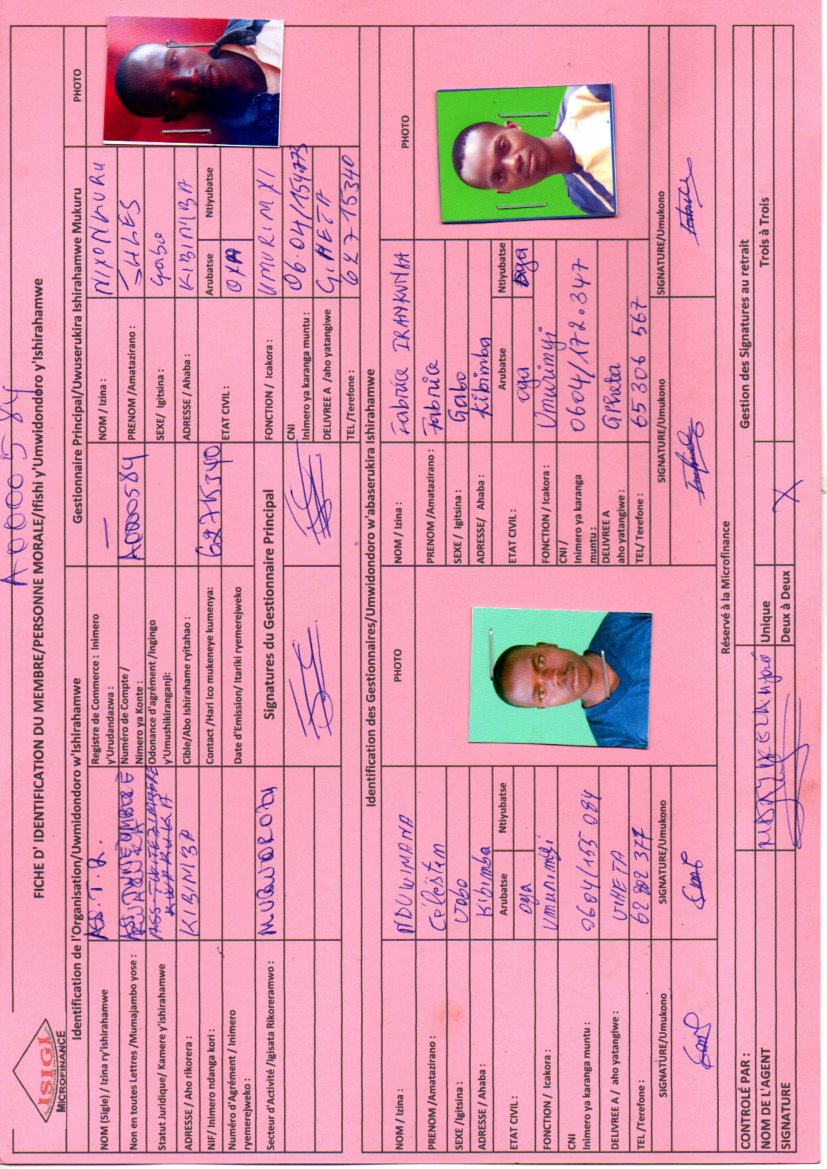 A0000584
ISIGI
MICROFINANCE
FICHE D' IDENTIFICATION DU MEMBRE/PERSONNE MORALE/Ifishi y'Umwidondoro y'Ishirahamwe
Identification de l'Organisation/Uwmidondoro w'Ishirahamwe
NOM (Sigle) / Izina ry'ishirahamwe
Non en toutes Lettres /Mumajambo yose :
Statut Juridique/ Kamere y'ishirahamwe
ADRESSE / Aho rikorera : KIBIMBA
NIF/ Inimero ndanga kori :
Numéro d'Agrément / Inimero
ryemerejweko :
Secteur d'Activité /Igisata Rikoreramwo :
Registre de Commerce : Inimero
y'Urudandazwa : —
Numéro de Compte /
Nimero ya Konte : A0000584
Odonance d'agrément /Ingingo
y'Umushikiranganji:
Cible/Abo Ishirahame ryitahao :
Contact /Hari ico mukeneye kumenya: 62715340
Date d'Emission/ Itariki ryemerejweko
Signatures du Gestionnaire Principal
Gestionnaire Principal/Uwuserukira Ishirahamwe Mukuru
PHOTO
NOM / Izina : NIYONKURU
PRENOM /Amatazirano : JULES
SEXE/ Igitsina : Gabo
ADRESSE / Ahaba : KIBIMBA
ETAT CIVIL :
Arubatse
Ntiyubatse
FONCTION / Icakora : UMURIMYI
CNI
Inimero ya karanga muntu :
DELIVREE A /aho yatangiwe GIHETA
TEL /Terefone : 62715340
Identification des Gestionnaires/Umwidondoro w'abaserukira Ishirahamwe
NOM / Izina : NDUWIMANA
PRENOM /Amatazirano : Céléstin
SEXE /Igitsina :
ADRESSE / Ahaba : Kibimba
ETAT CIVIL :
Arubatse
Ntiyubatse
oya
FONCTION / Icakora : Umurimyi
CNI
Inimero ya karanga muntu : 0604/155 084
DELIVREE A / aho yatangiwe :
TEL /Terefone : 62 802 377
SIGNATURE/Umukono
SIGNATURE/Umukono
PHOTO
NOM / Izina : Fabrice IRAKUNDA
PRENOM /Amatazirano : Fabrice
SEXE / Igitsina : Gabo
ADRESSE/ Ahaba : Kibimba
ETAT CIVIL :
Arubatse
Ntiyubatse
oya
FONCTION / Icakora : Umurimyi
CNI /
Inimero ya karanga
muntu : 0604/172.347
DELIVREE A
aho yatangiwe :
TEL/ Terefone : 65 306 567
SIGNATURE/Umukono
SIGNATURE/Umukono
PHOTO
Réservé à la Microfinance
CONTROLÉ PAR :
NOM DE L'AGENT
SIGNATURE
Gestion des Signatures au retrait
Unique
Deux à Deux X
Trois à Trois